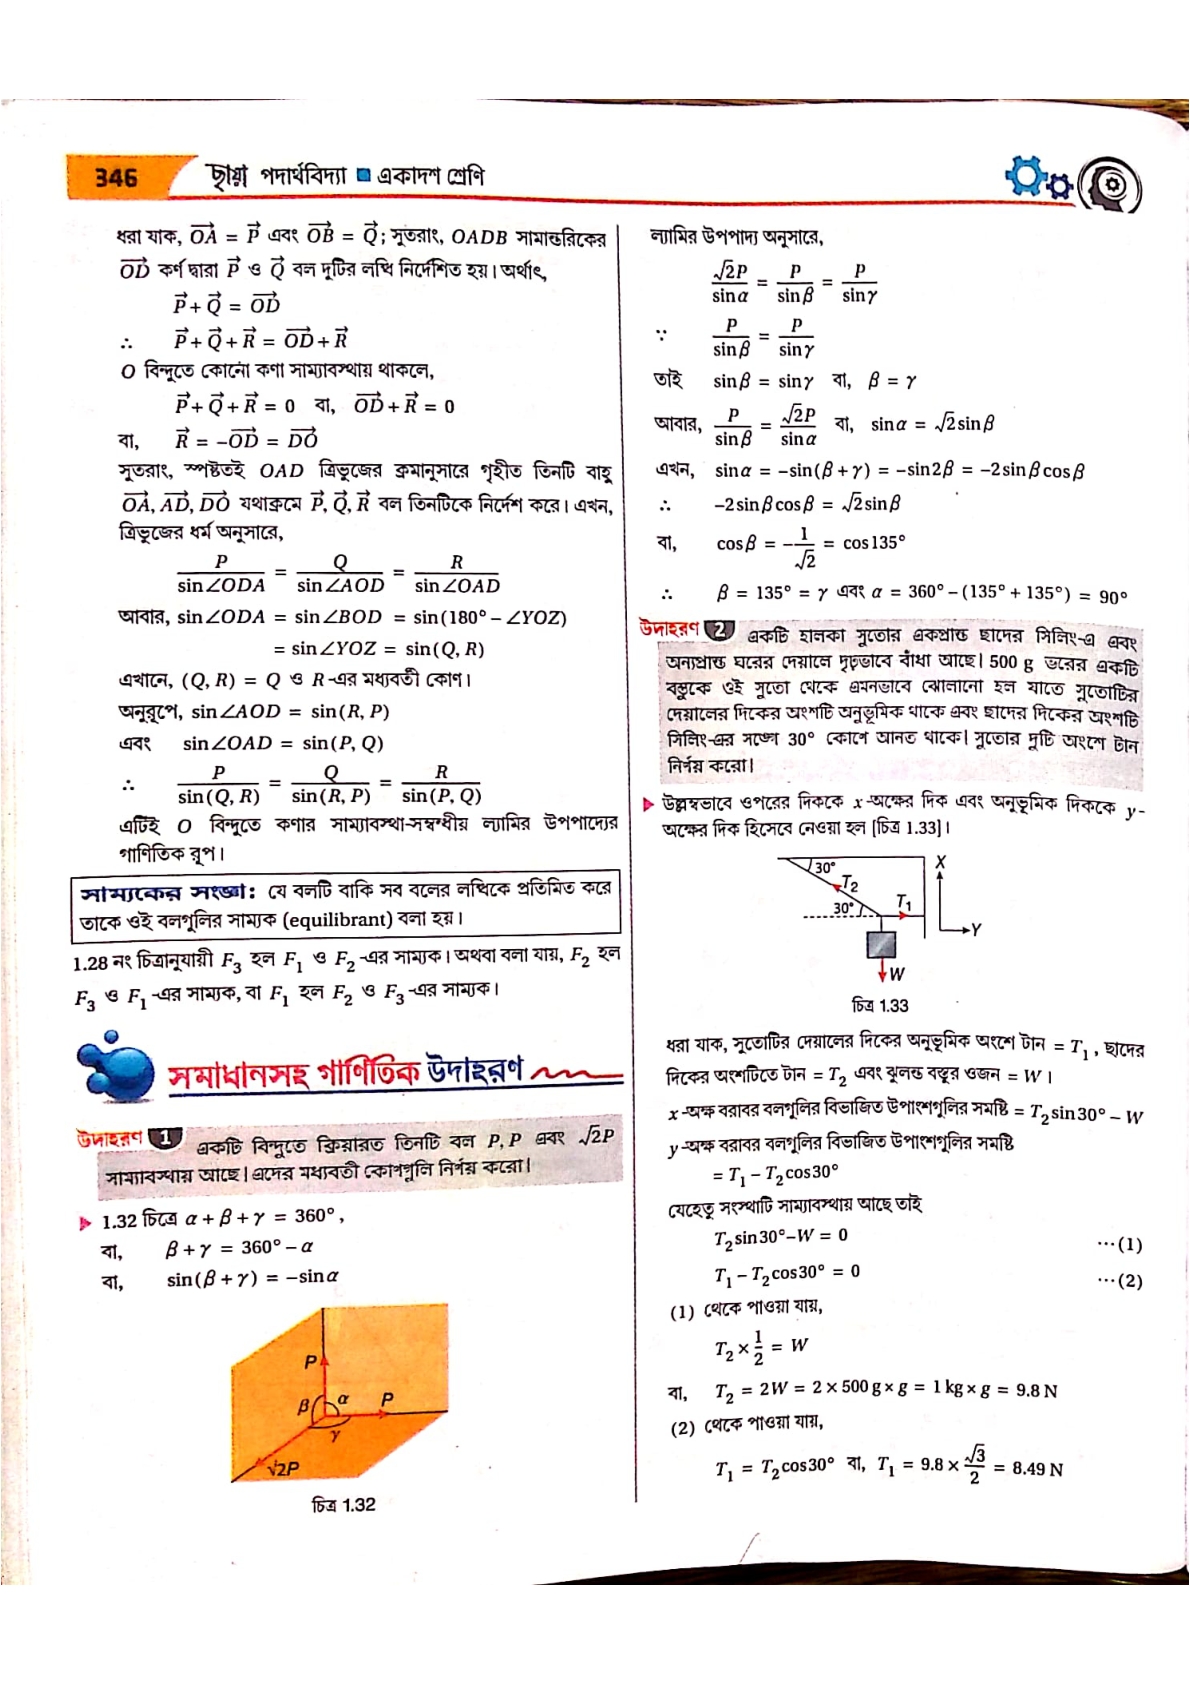 346
ছায়া পদার্থবিদ্যা ■ একাদশ শ্রেণি
ধরা যাক, $\overrightarrow{OA}$ = $\vec{P}$ এবং $\overrightarrow{OB}$ = $\vec{Q}$; সুতরাং, OADB সামান্তরিকের
$\overrightarrow{OD}$ কর্ণ দ্বারা $\vec{P}$ ও $\vec{Q}$ বল দুটির লব্ধি নির্দেশিত হয়। অর্থাৎ,
$\vec{P}+\vec{Q} = \overrightarrow{OD}$
∴ $\vec{P}+\vec{Q}+\vec{R} = \overrightarrow{OD}+\vec{R}$
O বিন্দুতে কোনো কণা সাম্যাবস্থায় থাকলে,
$\vec{P}+\vec{Q}+\vec{R} = 0$ বা, $\overrightarrow{OD}+\vec{R} = 0$
বা, $\vec{R} = -\overrightarrow{OD} = \overrightarrow{DO}$
সুতরাং, স্পষ্টতই OAD ত্রিভুজের ক্রমানুসারে গৃহীত তিনটি বাহু
$\overrightarrow{OA}, \overrightarrow{AD}, \overrightarrow{DO}$ যথাক্রমে $\vec{P}, \vec{Q}, \vec{R}$ বল তিনটিকে নির্দেশ করে। এখন,
ত্রিভুজের ধর্ম অনুসারে,
$\frac{P}{\sin∠ODA} = \frac{Q}{\sin∠AOD} = \frac{R}{\sin∠OAD}$
আবার, sin∠ODA = sin∠BOD = sin(180° – ∠YOZ)
= sin∠YOZ = sin(Q, R)
এখানে, (Q, R) = Q ও R-এর মধ্যবর্তী কোণ।
অনুরূপে, sin∠AOD = sin(R, P)
এবং sin∠OAD = sin(P, Q)
∴ $\frac{P}{\sin(Q, R)} = \frac{Q}{\sin(R, P)} = \frac{R}{\sin(P, Q)}$
এটিই O বিন্দুতে কণার সাম্যাবস্থা-সম্বন্ধীয় ল্যামির উপপাদ্যের
গাণিতিক রূপ।
সাম্যকের সংজ্ঞা: যে বলটি বাকি সব বলের লব্ধিকে প্রতিমিত করে
তাকে ওই বলগুলির সাম্যক (equilibrant) বলা হয়।
1.28 নং চিত্রানুযায়ী F₃ হল F₁ ও F₂-এর সাম্যক। অথবা বলা যায়, F₂ হল
F₃ ও F₁-এর সাম্যক, বা F₁ হল F₂ ও F₃-এর সাম্যক।
সমাধানসহ গাণিতিক উদাহরণ
উদাহরণ 1 একটি বিন্দুতে ক্রিয়ারত তিনটি বল P, P এবং √2P
সাম্যাবস্থায় আছে। এদের মধ্যবর্তী কোণগুলি নির্ণয় করো।
▶ 1.32 চিত্রে α + β + γ = 360°,
বা, β + γ = 360° – α
বা, sin(β + γ) = –sinα
P
β α P
γ
√2P
চিত্র 1.32
ল্যামির উপপাদ্য অনুসারে,
$\frac{√2P}{\sinα} = \frac{P}{\sinβ} = \frac{P}{\sinγ}$
∵ $\frac{P}{\sinβ} = \frac{P}{\sinγ}$
তাই sinβ = sinγ বা, β = γ
আবার, $\frac{P}{\sinβ} = \frac{√2P}{\sinα}$ বা, sinα = √2sinβ
এখন, sinα = –sin(β + γ) = –sin2β = –2sinβcosβ
∴ –2sinβcosβ = √2sinβ
বা, cosβ = $-\frac{1}{√2}$ = cos135°
∴ β = 135° = γ এবং α = 360° – (135° + 135°) = 90°
উদাহরণ 2 একটি হালকা সুতোর একপ্রান্ত ছাদের সিলিং-এ এবং
অন্যপ্রান্ত ঘরের দেয়ালে দৃঢ়ভাবে বাঁধা আছে। 500 g ভরের একটি
বস্তুকে ওই সুতো থেকে এমনভাবে ঝোলানো হল যাতে সুতোটির
দেয়ালের দিকের অংশটি অনুভূমিক থাকে এবং ছাদের দিকের অংশটি
সিলিং-এর সঙ্গে 30° কোণে আনত থাকে। সুতোর দুটি অংশে টান
নির্ণয় করো।
▶ উল্লম্বভাবে ওপরের দিককে x-অক্ষের দিক এবং অনুভূমিক দিককে y-
অক্ষের দিক হিসেবে নেওয়া হল [চিত্র 1.33]।
30° X
T₂
30° T₁
Y
W
চিত্র 1.33
ধরা যাক, সুতোটির দেয়ালের দিকের অনুভূমিক অংশে টান = T₁, ছাদের
দিকের অংশটিতে টান = T₂ এবং ঝুলন্ত বস্তুর ওজন = W।
x-অক্ষ বরাবর বলগুলির বিভাজিত উপাংশগুলির সমষ্টি = T₂sin30° – W
y-অক্ষ বরাবর বলগুলির বিভাজিত উপাংশগুলির সমষ্টি
= T₁ – T₂cos30°
যেহেতু সংস্থাটি সাম্যাবস্থায় আছে তাই
T₂sin30°–W = 0 ···(1)
T₁ – T₂cos30° = 0 ···(2)
(1) থেকে পাওয়া যায়,
T₂ × $\frac{1}{2}$ = W
বা, T₂ = 2W = 2 × 500 g × g = 1 kg × g = 9.8 N
(2) থেকে পাওয়া যায়,
T₁ = T₂cos30° বা, T₁ = 9.8 × $\frac{√3}{2}$ = 8.49 N